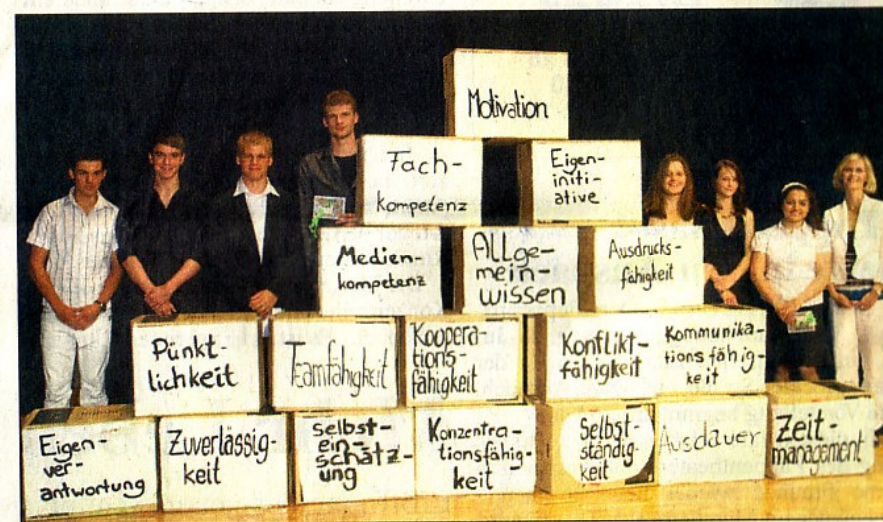 Motivation
Fach-
kompetenz
Eigen-
initi-
ative
Medien-
kompetenz
ALLge-
mein-
wissen
Ausdrucks-
fähigkeit
Pünkt-
lichkeit
Teamfähigkeit
Koopera-
tions-
fähigkeit
Konflikt-
fähigkeit
Kommunika-
tionsfähig-
keit
Eigen-
ver-
antwortung
Zuverlässig-
keit
Selbst-
ein-
schätz-
ung
Konzentra-
tionsfähig-
keit
Selbst-
ständig-
keit
Ausdauer
Zeit-
management